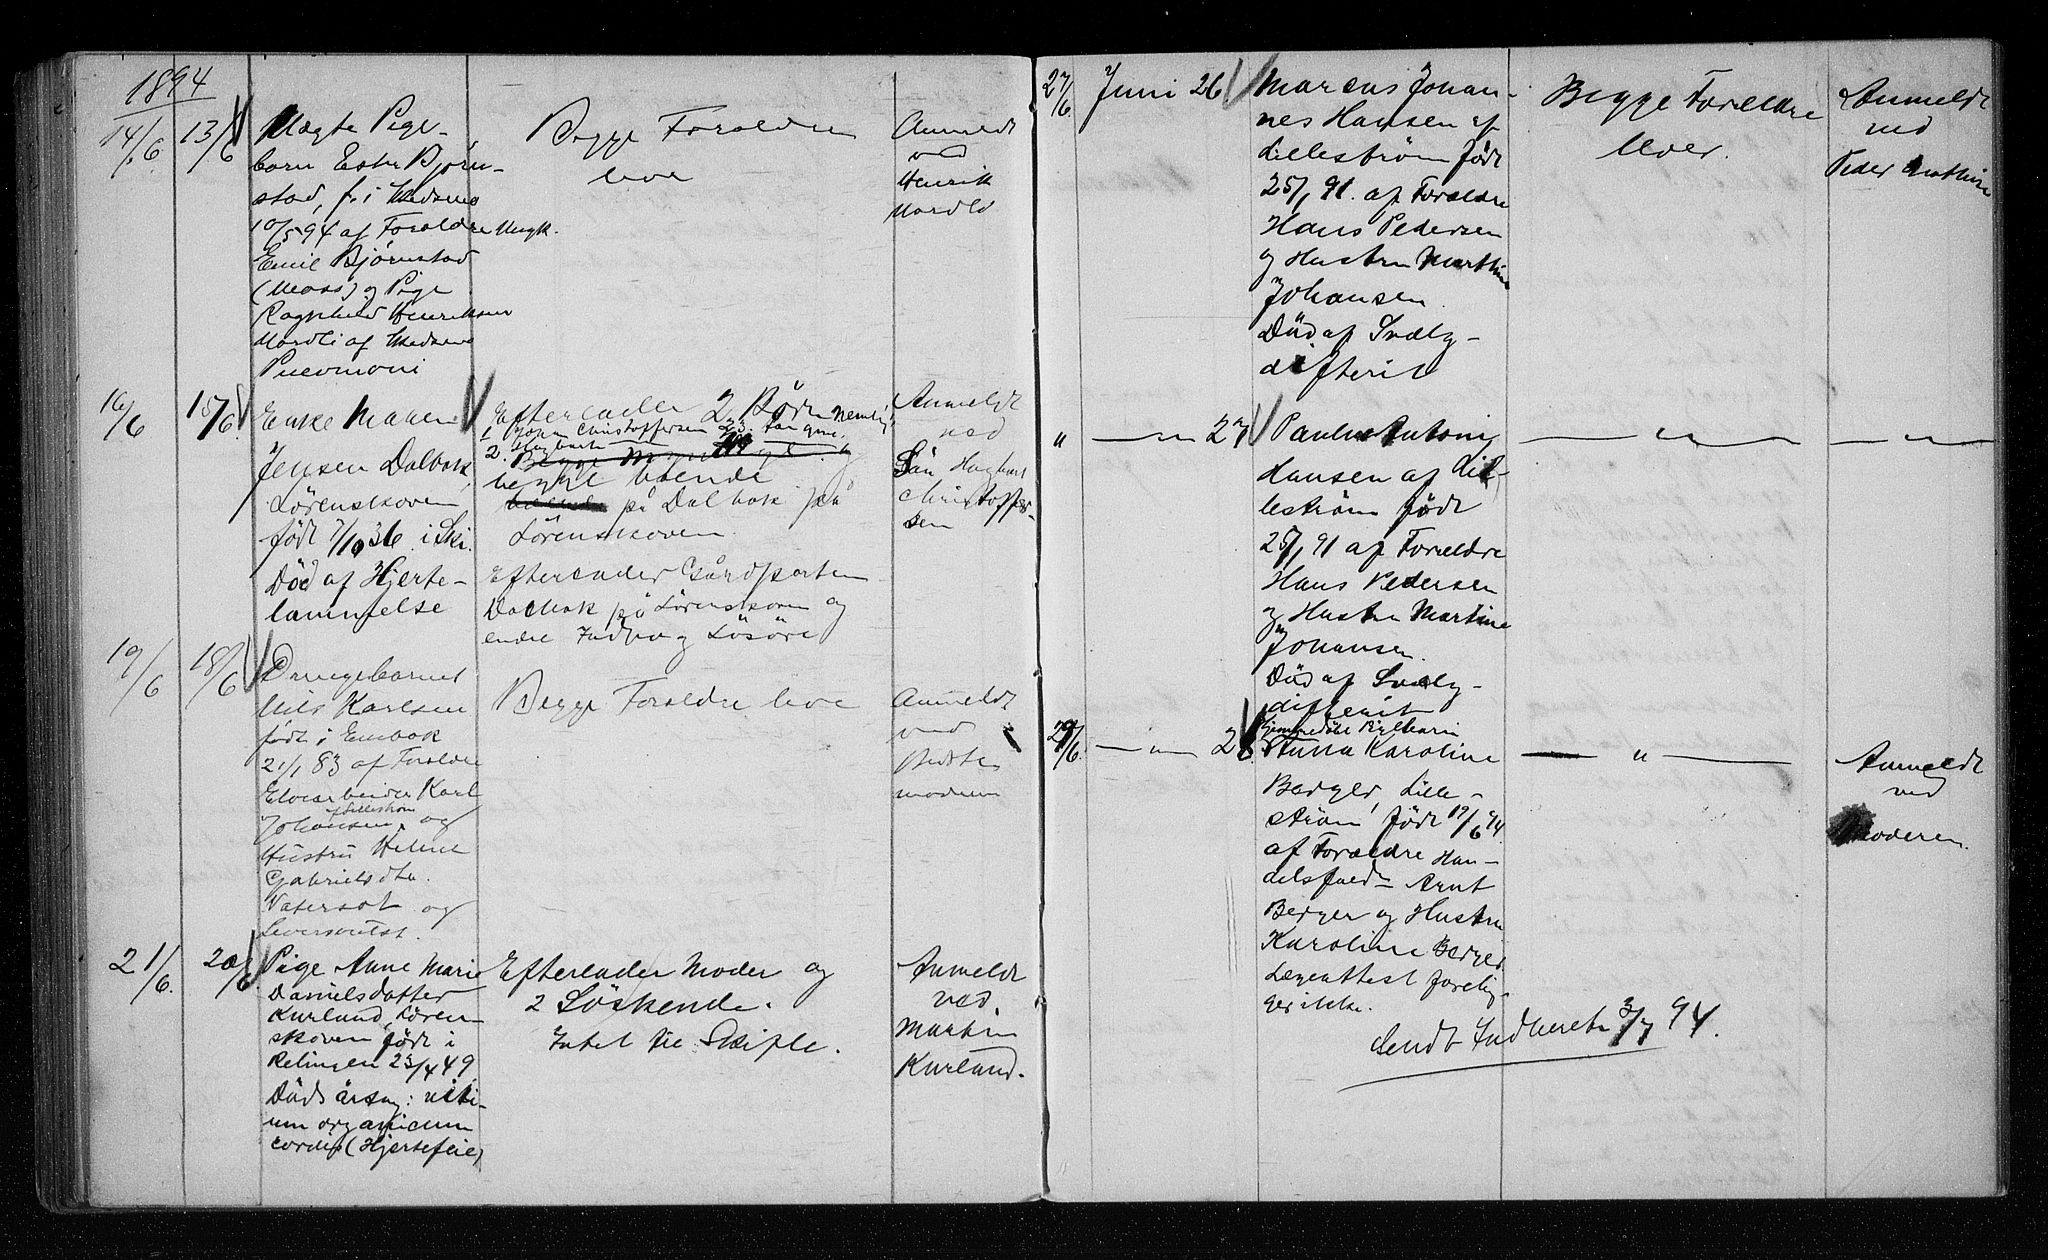 1894
14/6 13/6
Uægte Pige-
barn Ester Bjørn-
stad, f. i
10/5 94 af Forældre Ungk.
Emil Bjørnstad
(Moss) og Pige
Ragnhild Henriksen
Nordli af
Pnevmoni
Begge Forældre
leve
Anmeldt
ved
Henrik
Nordli
16/6 15/6
Enke Maren
Jensen Dalbak,
Lørenskoven
født 7/10 36 i Ski.
Død af Hjerte-
lammelse
Efterlader 2 Børn nemlig
1. Johan Christoffersen
2. Hagbart
begge boende
på Dalbak på
Lørenskoven.
Efterlader Gårdparten
Dalbak på Lørenskoven og
endel Indbo og Løsøre
Anmeldt
ved
Søn Hagbart
Christoffer-
sen
19/6 18/6
Drengebarnet
Nils Karlsen
født i Enebak
21/1 83 af Forældre
Elvearbeider Karl
af Lillestrøm
Johansen og
Hustru Helene
Gabrielsdtr.
Vatersot og
Begge Forældre leve
Anmeldt
ved
Bedste
moderen
21/6. 20/6
Pige Anne Marie
Danielsdatter
Kurland, Løren-
skoven født i
Relingen 23/4 49
Dødsårsag: viti-
um organicum
cordis (Hjertefeil)
Efterlader Moder og
2 Søskende.
Intet til Skifte.
Anmeldt
ved
Martin
Kurland.
27/6. Juni 26
Marcus Johan-
nes Hansen af
Lillestrøm født
25/1 91. af Forældre
Hans Pedersen
og Hustru Marthine
Johansen.
Død af Svælg-
difterit
Begge Forældre
lever.
Anmeldt
ved
Peder
" — " — 27
Paul Antoni
Hansen af Lil-
lestrøm født
25/1 91 af Forældre
Hans Pedersen
og Hustru Martine
Johansen.
Død af Svælg-
difterit
— " —
29/6. — " — 28
Hjemmedøbt Pigebarn
Anna Karoline
Berger, Lille-
strøm født 19/6 94
af Forældre Han-
delsfuldm Arnt
Berger og Hustru
Karoline Berger.
Lægeattest forelig-
ger ikke.
— " —
Anmeldt
ved
Moderen.
Sendt Indberetn 3/7 94.